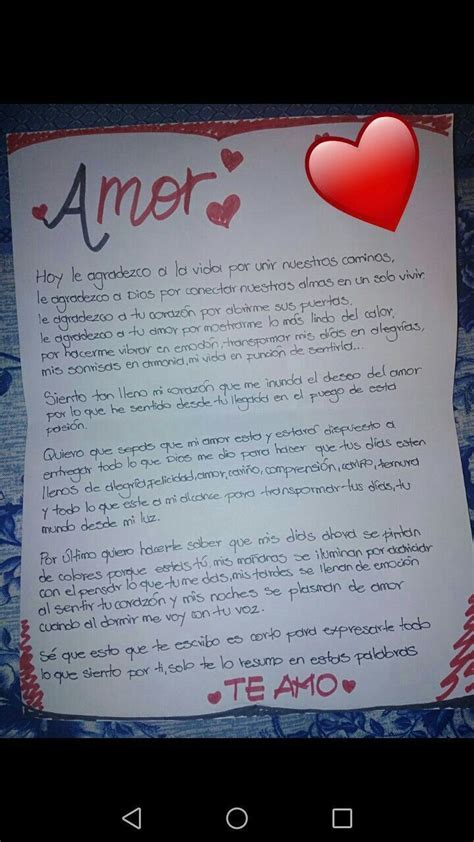 Amor
Hoy le agradezco a la vida por unir nuestros caminos,
le agradezco a Dios por conectar nuestras almas en un solo vivir
le agradezco a tu corazón por abrirme sus puertas.
le agradezco a tu amor por mostrarme lo más lindo del calor,
por hacerme vibrar en emoción, transformar mis días en alegrías,
mis sonrisas en armonia, mi vida en función de sentirla...
Siento tan lleno mi corazón que me inunda el deseo del amor
por lo que he sentido desde tu llegada en el fuego de esta
pasión.
Quiero que sepas que mi amor esta y estará dispuesto a
entregar todo lo que Dios me dio para hacer que tus días esten
llenos de alegría, felicidad, amor, cariño, comprensión, cariño, ternura
y todo lo que este a mi alcance para transformar tus días, tu
mundo desde mi luz.
Por último quiero hacerte saber que mis días ahora se pintan
de colores porque estás tú, mis mañanas se iluminan por
con el pensar lo que tu me das, mis tardes se llenan de emoción
al sentir tu corazón y mis noches se plasman de amor
cuando al dormir me voy con tu voz.
Sé que esto que te escribo es corto para expresarte todo
lo que siento por ti, solo te lo resumo en estas palabras
TE AMO